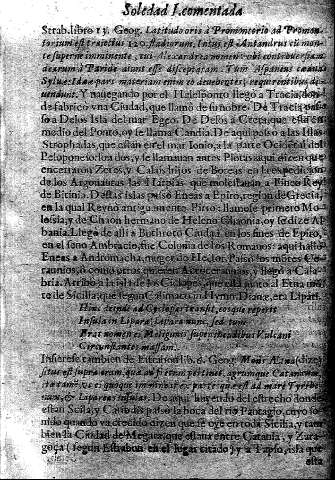 Soledad I. comentada
Strab. libro 13. Geog. Latitudo oris à Promontorio ad Promon-
torium est traiectus 120. stadiorum. Intus est Antandrus cui mon-
te superne imminente, cui Alexandrea nomen
dearum à Paride aiunt esse disceptatam.
Sylvae Idae pars
. Y navegando por el Helesponto llegò a Tracia, don-
de fabricò vna Ciudad, que llamò de su nombre. De Tracia pas-
sò a Delos Isla del mar Egeo. De Delos a Creta, que està en
medio del Ponto, oy se llama Candia. De aqui passò a las Islas
Strophadas, que estan en el mar Ionio, a la parte Ocidental del
Peloponeso los dos, y se llamauan antes Plotas aqui dizen que
encerraron Zetes, y Calais hijos de Boreas en la expedicion
de los Argonautas las Harpias que molestauan a Fineo Rey
de Bitinia. Destas Islas passò Eneas a Epiro, region de Grecia,
en la qual Reynò antiguamente Pirro: llamose primero Mo-
losia, y de Chaon hermano de Heleno Chaonia, oy se dize Al-
bania. Llegò de alli a Buthroto Ciudad en los fines de Epiro,
en el seno Ambracio, fue Colonia de los Romanos: aqui hallò
Eneas a Andromacha, muger de Hector. Passò los mõtes Ce-
raunios, ò como otros quieren Acroceraunos, y llegò a Cala-
bria. Arribò a la isla de los Ciclopes, que està junto al Etna mõ-
te de Sicilia, que segun Calimaco in Hymn. Dianae, era Lipari.
Hinc tendit ad Cyclopas transit, eosque reperit
Insula in Lipara, Lipara nunc, sed tum
Erat nomen ei Meligunis super incudibus Vulcani
Circumstantes massam.
Infierese tambien de Estrabon lib. 6. Geog. Mons Aetna (dize)
situs est supra oram quae ad fretum pertinet, agrumque Catanaeum
, sed & ex parte quae est ad mare Tyrrhe-
num, & Liparaeas insulas. De aqui huyendo del estrecho donde
estan Scila, y Caribdis passò la boca del rio Pantagio, cuyo so-
nido quando va crecido dizen que se oye en toda Sicilia, y tam-
bien la Ciudad de Megara, que estaua entre Catania, y Zara-
goça (segun Estrabon en el lugar citado) y a Tapso, isla que
esta